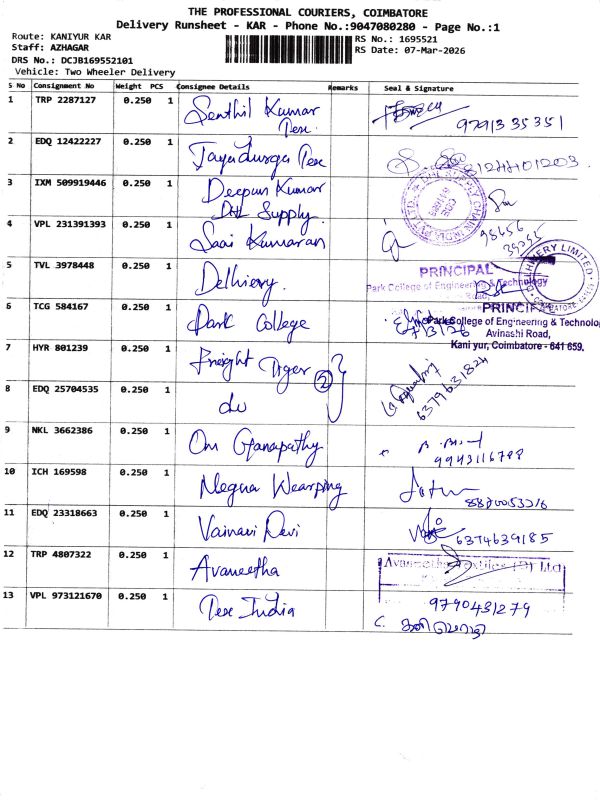 THE PROFESSIONAL COURIERS, COIMBATORE
Delivery Runsheet - KAR - Phone No.:9047080280 - Page No.:1
Route: KANIYUR KAR
Staff: AZHAGAR
DRS No.: DCJB169552101
Vehicle: Two Wheeler Delivery
RS No.: 1695521
RS Date: 07-Mar-2026
S No Consignment No Weight PCS Consignee Details Remarks Seal & Signature
1 TRP 2287127 0.250 1 Senthil Kumar
Tex. 9791335351
2 EDQ 12422227 0.250 1 Jayadurga Tex 8124401203
3 IXM 509919446 0.250 1 Deepan Kumar
DHL Supply
4 VPL 231391393 0.250 1 Saai Kumaran 98656
39255
5 TVL 3978448 0.250 1 Delhivery.
PRINCIPAL
Park College of Engineering & Technology
Road,
DELHIVERY LIMITED
COIMBATORE
6 TCG 584167 0.250 1 Park College
7/3/26
PRINCIPAL
Park College of Engineering & Technolo
Avinashi Road,
Kaniyur, Coimbatore - 641 659.
7 HYR 801239 0.250 1 Freight Tiger
8 EDQ 25704535 0.250 1 do (2) 6379631824
9 NKL 3662386 0.250 1 Om Ganapathy
9943116798
10 ICH 169598 0.250 1 Megna Wearping
11 EDQ 23318663 0.250 1 Vainavi Devi 6374639185
12 TRP 4807322 0.250 1 Avaneetha
Avaneetha Textiles (P) Ltd
13 VPL 973121670 0.250 1 Tex India 9790431279